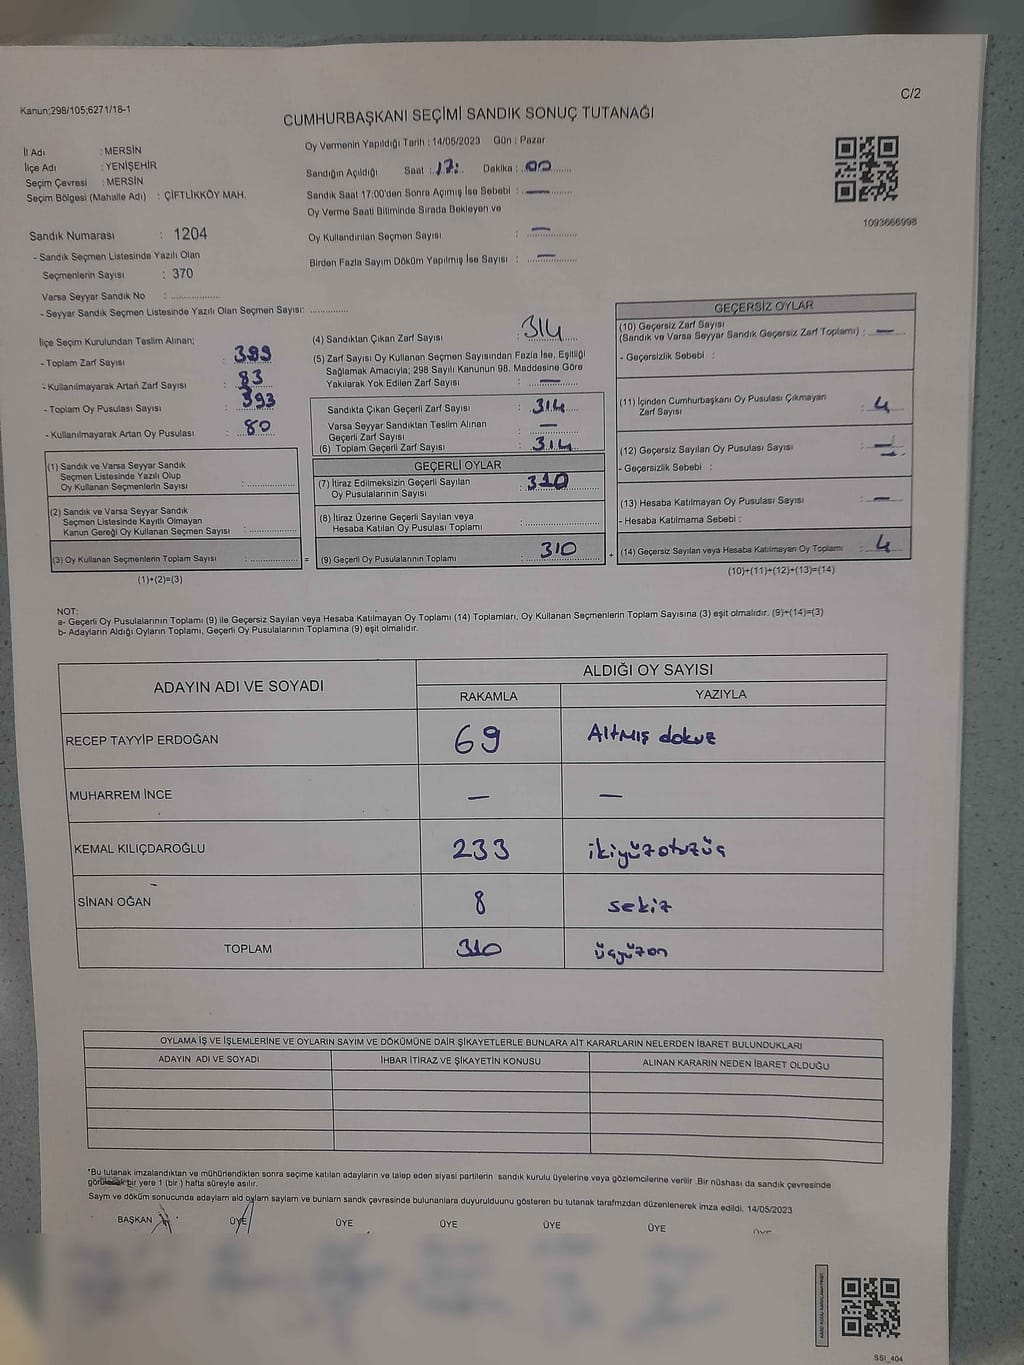 Kanun;298/105;6271/18-1
C/2
CUMHURBAŞKANI SEÇİMİ SANDIK SONUÇ TUTANAĞI
İl Adı : MERSİN
İlçe Adı : YENİŞEHİR
Seçim Çevresi : MERSİN
Seçim Bölgesi (Mahalle Adı) : ÇİFTLİKKÖY MAH.
Sandık Numarası : 1204
- Sandık Seçmen Listesinde Yazılı Olan
Seçmenlerin Sayısı : 370
Varsa Seyyar Sandık No : ..................
- Seyyar Sandık Seçmen Listesinde Yazılı Olan Seçmen Sayısı: .............
Oy Vermenin Yapıldığı Tarih : 14/05/2023 Gün : Pazar
Sandığın Açıldığı Saat : 17: Dakika : 00
Sandık Saat 17:00'den Sonra Açımış İse Sebebi : —
Oy Verme Saati Bitiminde Sırada Bekleyen ve
Oy Kullandırılan Seçmen Sayısı : —
Birden Fazla Sayım Döküm Yapılmış İse Sayısı : —
1093666998
İlçe Seçim Kurulundan Teslim Alınan;
- Toplam Zarf Sayısı :
- Kullanılmayarak Artan Zarf Sayısı : 83
- Toplam Oy Pusulası Sayısı : 393
- Kullanılmayarak Artan Oy Pusulası : 80
(1) Sandık ve Varsa Seyyar Sandık
Seçmen Listesinde Yazılı Olup
Oy Kullanan Seçmenlerin Sayısı :
(2) Sandık ve Varsa Seyyar Sandık
Seçmen Listesinde Kayıtlı Olmayan
Kanun Gereği Oy Kullanan Seçmen Sayısı :
(3) Oy Kullanan Seçmenlerin Toplam Sayısı : =
(1)+(2)=(3)
(4) Sandıktan Çıkan Zarf Sayısı : 314
(5) Zarf Sayısı Oy Kullanan Seçmen Sayısından Fazla İse, Eşitliği
Sağlamak Amacıyla; 298 Sayılı Kanunun 98. Maddesine Göre
Yakılarak Yok Edilen Zarf Sayısı : —
Sandıkta Çıkan Geçerli Zarf Sayısı : 314
Varsa Seyyar Sandıktan Teslim Alınan
Geçerli Zarf Sayısı : —
(6) Toplam Geçerli Zarf Sayısı : 314
GEÇERLİ OYLAR
(7) İtiraz Edilmeksizin Geçerli Sayılan
Oy Pusulalarının Sayısı : 310
(8) İtiraz Üzerine Geçerli Sayılan veya
Hesaba Katılan Oy Pusulası Toplamı :
(9) Geçerli Oy Pusulalarının Toplamı : 310 +
GEÇERSİZ OYLAR
(10) Geçersiz Zarf Sayısı
(Sandık ve Varsa Seyyar Sandık Geçersiz Zarf Toplamı) : —
- Geçersizlik Sebebi :
(11) İçinden Cumhurbaşkanı Oy Pusulası Çıkmayan
Zarf Sayısı : 4
(12) Geçersiz Sayılan Oy Pusulası Sayısı : —
- Geçersizlik Sebebi :
(13) Hesaba Katılmayan Oy Pusulası Sayısı : —
- Hesaba Katılmama Sebebi :
(14) Geçersiz Sayılan veya Hesaba Katılmayan Oy Toplamı : 4
(10)+(11)+(12)+(13)=(14)
NOT:
a- Geçerli Oy Pusulalarının Toplamı (9) ile Geçersiz Sayılan veya Hesaba Katılmayan Oy Toplamı (14) Toplamları, Oy Kullanan Seçmenlerin Toplam Sayısına (3) eşit olmalıdır. (9)+(14)=(3)
b- Adayların Aldığı Oyların Toplamı, Geçerli Oy Pusulalarının Toplamına (9) eşit olmalıdır.
ADAYIN ADI VE SOYADI
ALDIĞI OY SAYISI
RAKAMLA YAZIYLA
RECEP TAYYİP ERDOĞAN 69 Altmış dokuz
MUHARREM İNCE — —
KEMAL KILIÇDAROĞLU 233 ikiyüzotuzüç
SİNAN OĞAN 8 sekiz
TOPLAM 310 üçyüzon
OYLAMA İŞ VE İŞLEMLERİNE VE OYLARIN SAYIM VE DÖKÜMÜNE DAİR ŞİKAYETLERLE BUNLARA AİT KARARLARIN NELERDEN İBARET BULUNDUKLARI
ADAYIN ADI VE SOYADI İHBAR İTİRAZ VE ŞİKAYETİN KONUSU ALINAN KARARIN NEDEN İBARET OLDUĞU
*Bu tutanak imzalandıktan ve mühürlendikten sonra seçime katılan adayların ve talep eden siyasi partilerin sandık kurulu üyelerine veya gözlemcilerine verilir .Bir nüshası da sandık çevresinde
görülecek bir yere 1 (bir ) hafta süreyle asılır.
Sayım ve döküm sonucunda adayların ald oyların sayların ve bunların sandık çevresinde bulunanlara duyurulduunu gösteren bu tutanak tarafmzdan düzenlenerek imza edildi. 14/05/2023
BAŞKAN ÜYE ÜYE ÜYE ÜYE ÜYE
SSİ_404